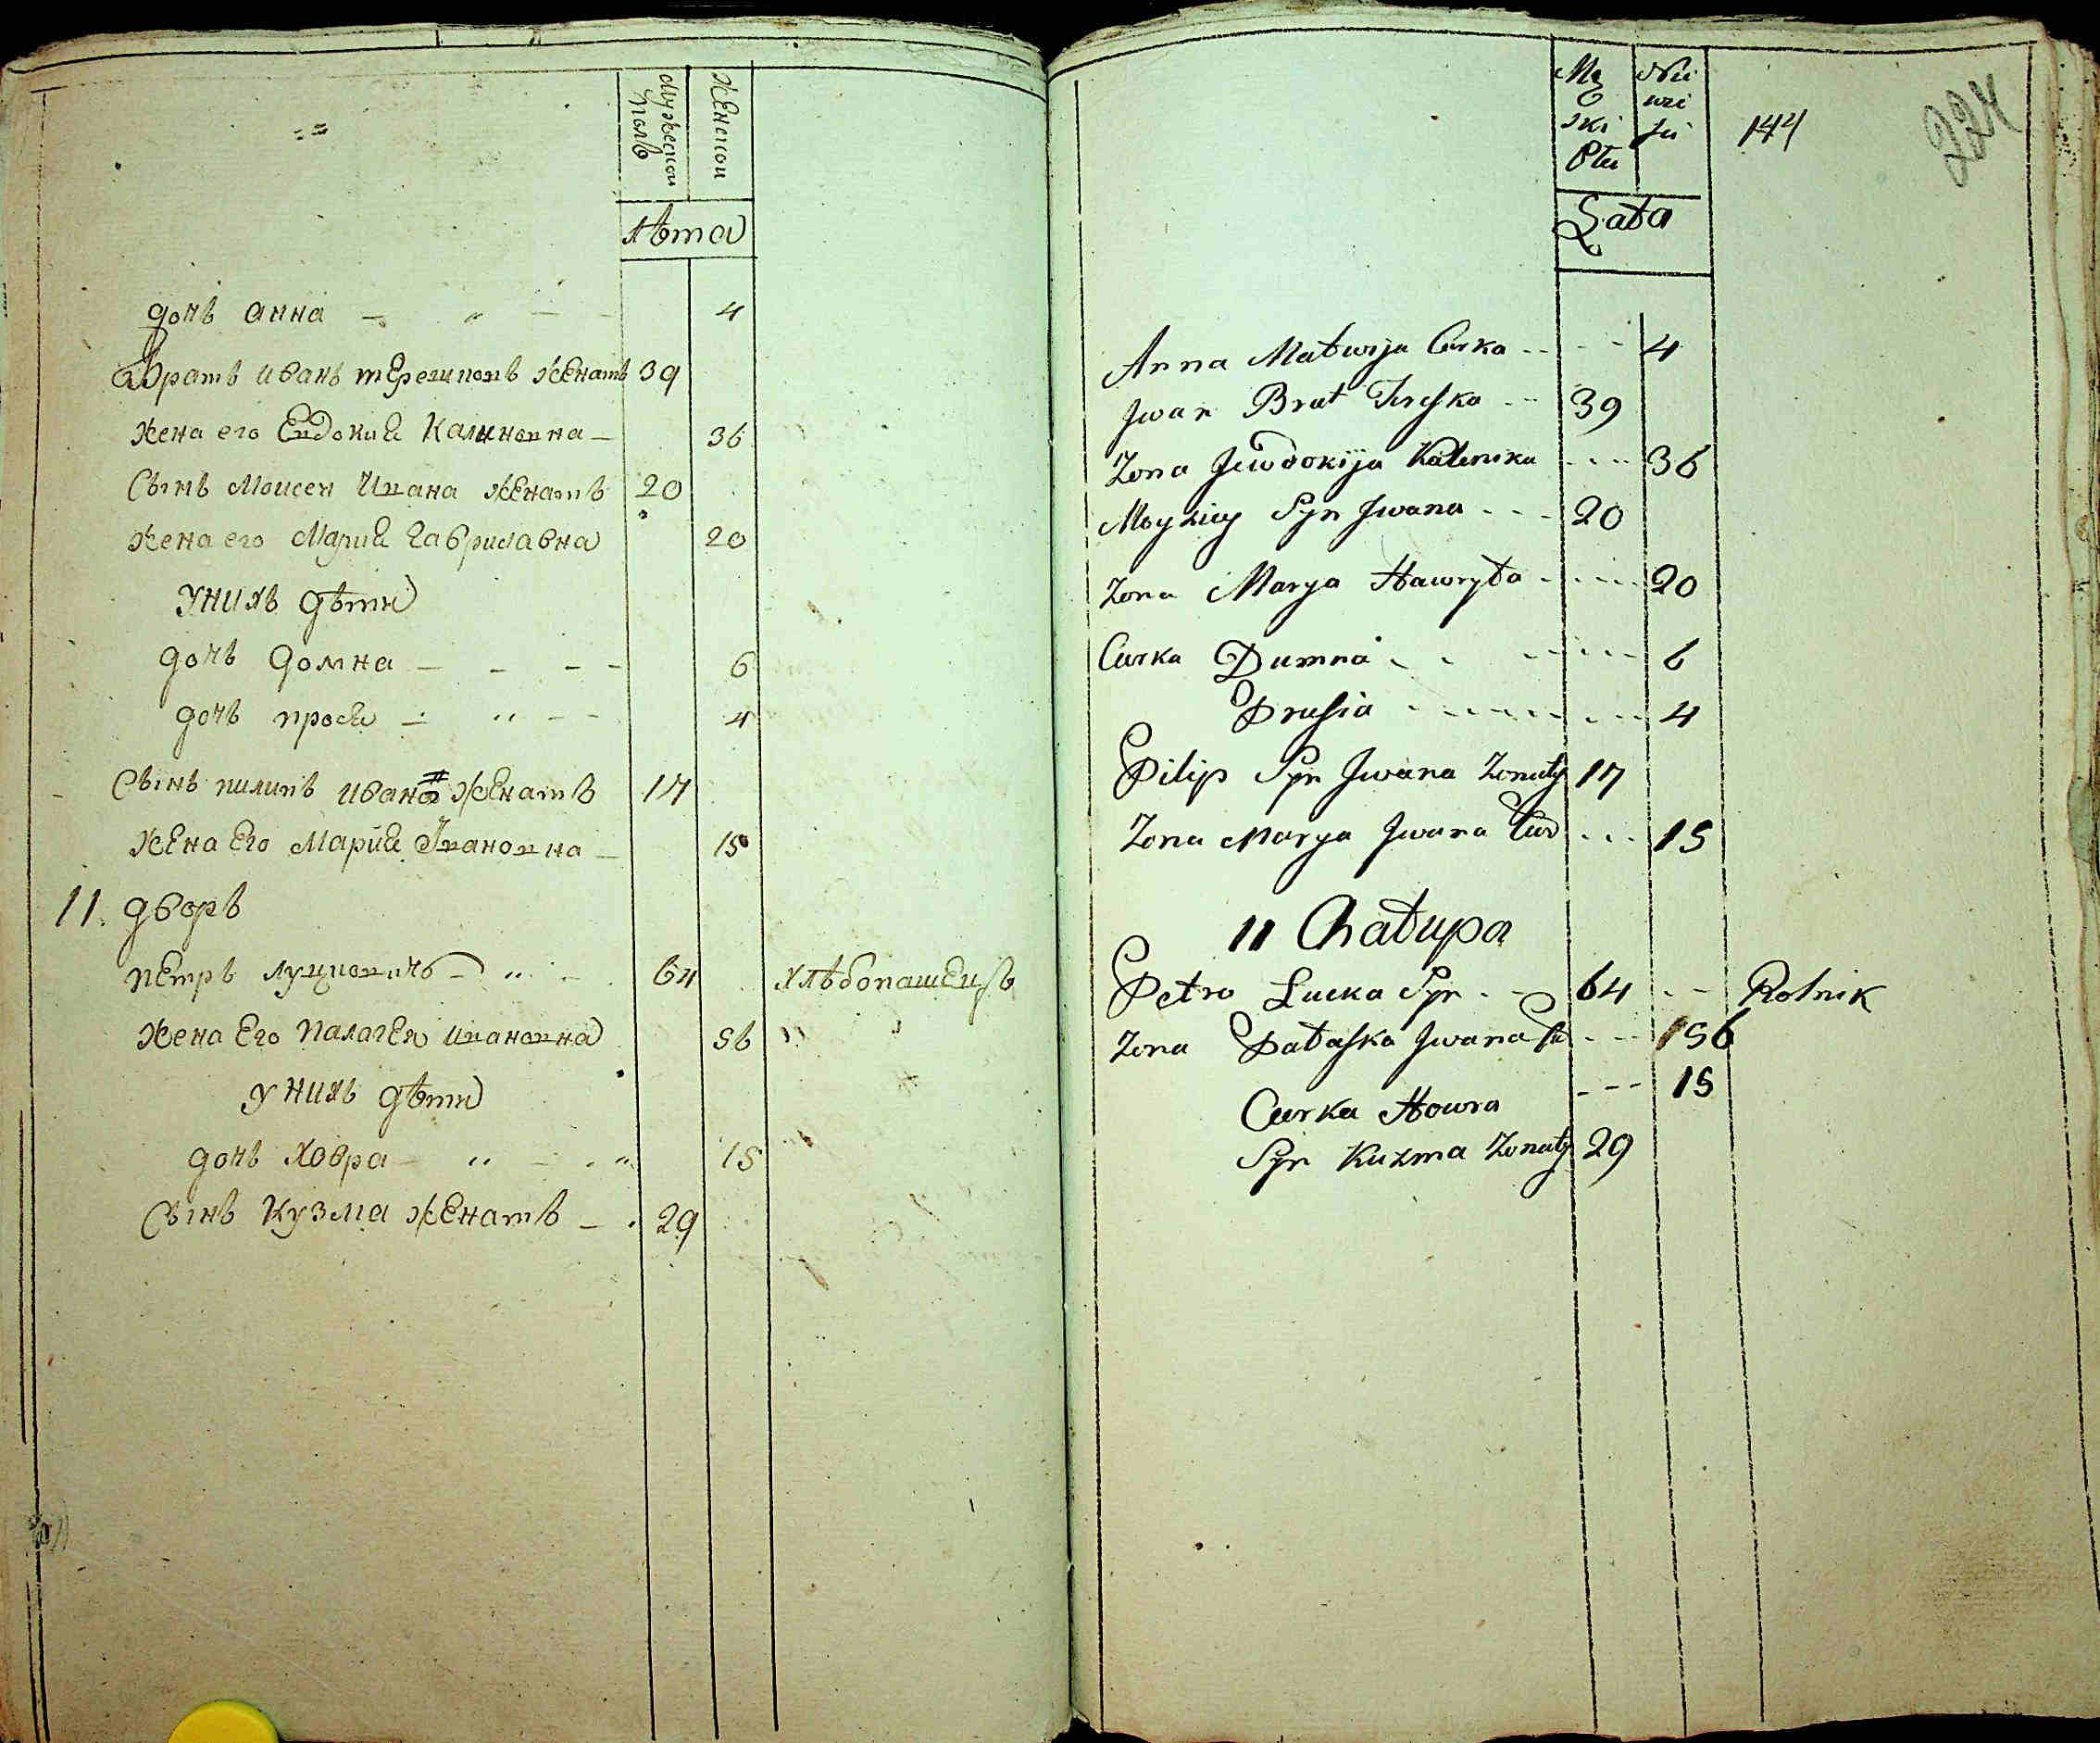 Мужескои полъ
Женскои
лѣта
дочь анна 4
Братъ иванъ терешковъ женатъ 39
жена его Евдокиа Калиновна 36
Сынъ Моисеи Ивана женатъ 20
жена его Мариа Гавриловна 20
У нихъ дѣти
дочь Домна 6
дочь прося 4
Сынъ пилипъ ивана женатъ 17
жена Его Мариа Ивановна 15
11. дворъ
петръ луцковичъ 64 хлѣбопашецъ
жена Его Палагея ивановна 56 "
у нихъ дѣти
дочь ховра 15
Сынъ Кузма женатъ 29
Męski Płci
144
224
Łata
Anna Matwija Curka 4
Jwan Brat Tereszka 39
Zona Jewdokija Kalenika 36
Moyziey Syn Jwana 20
Zona Marya Hawryła 20
Curka Dumna 6
Prusia 4
Pilip Syn Jwana Zonaty 17
Zona Marya Jwana Cur 15
11 Chałupa
Petro Lucka Syn 64 Rolnik
Zona Pałaszka Jwana 156
Curka Howra 15
Syn Kuzma Zonaty 29